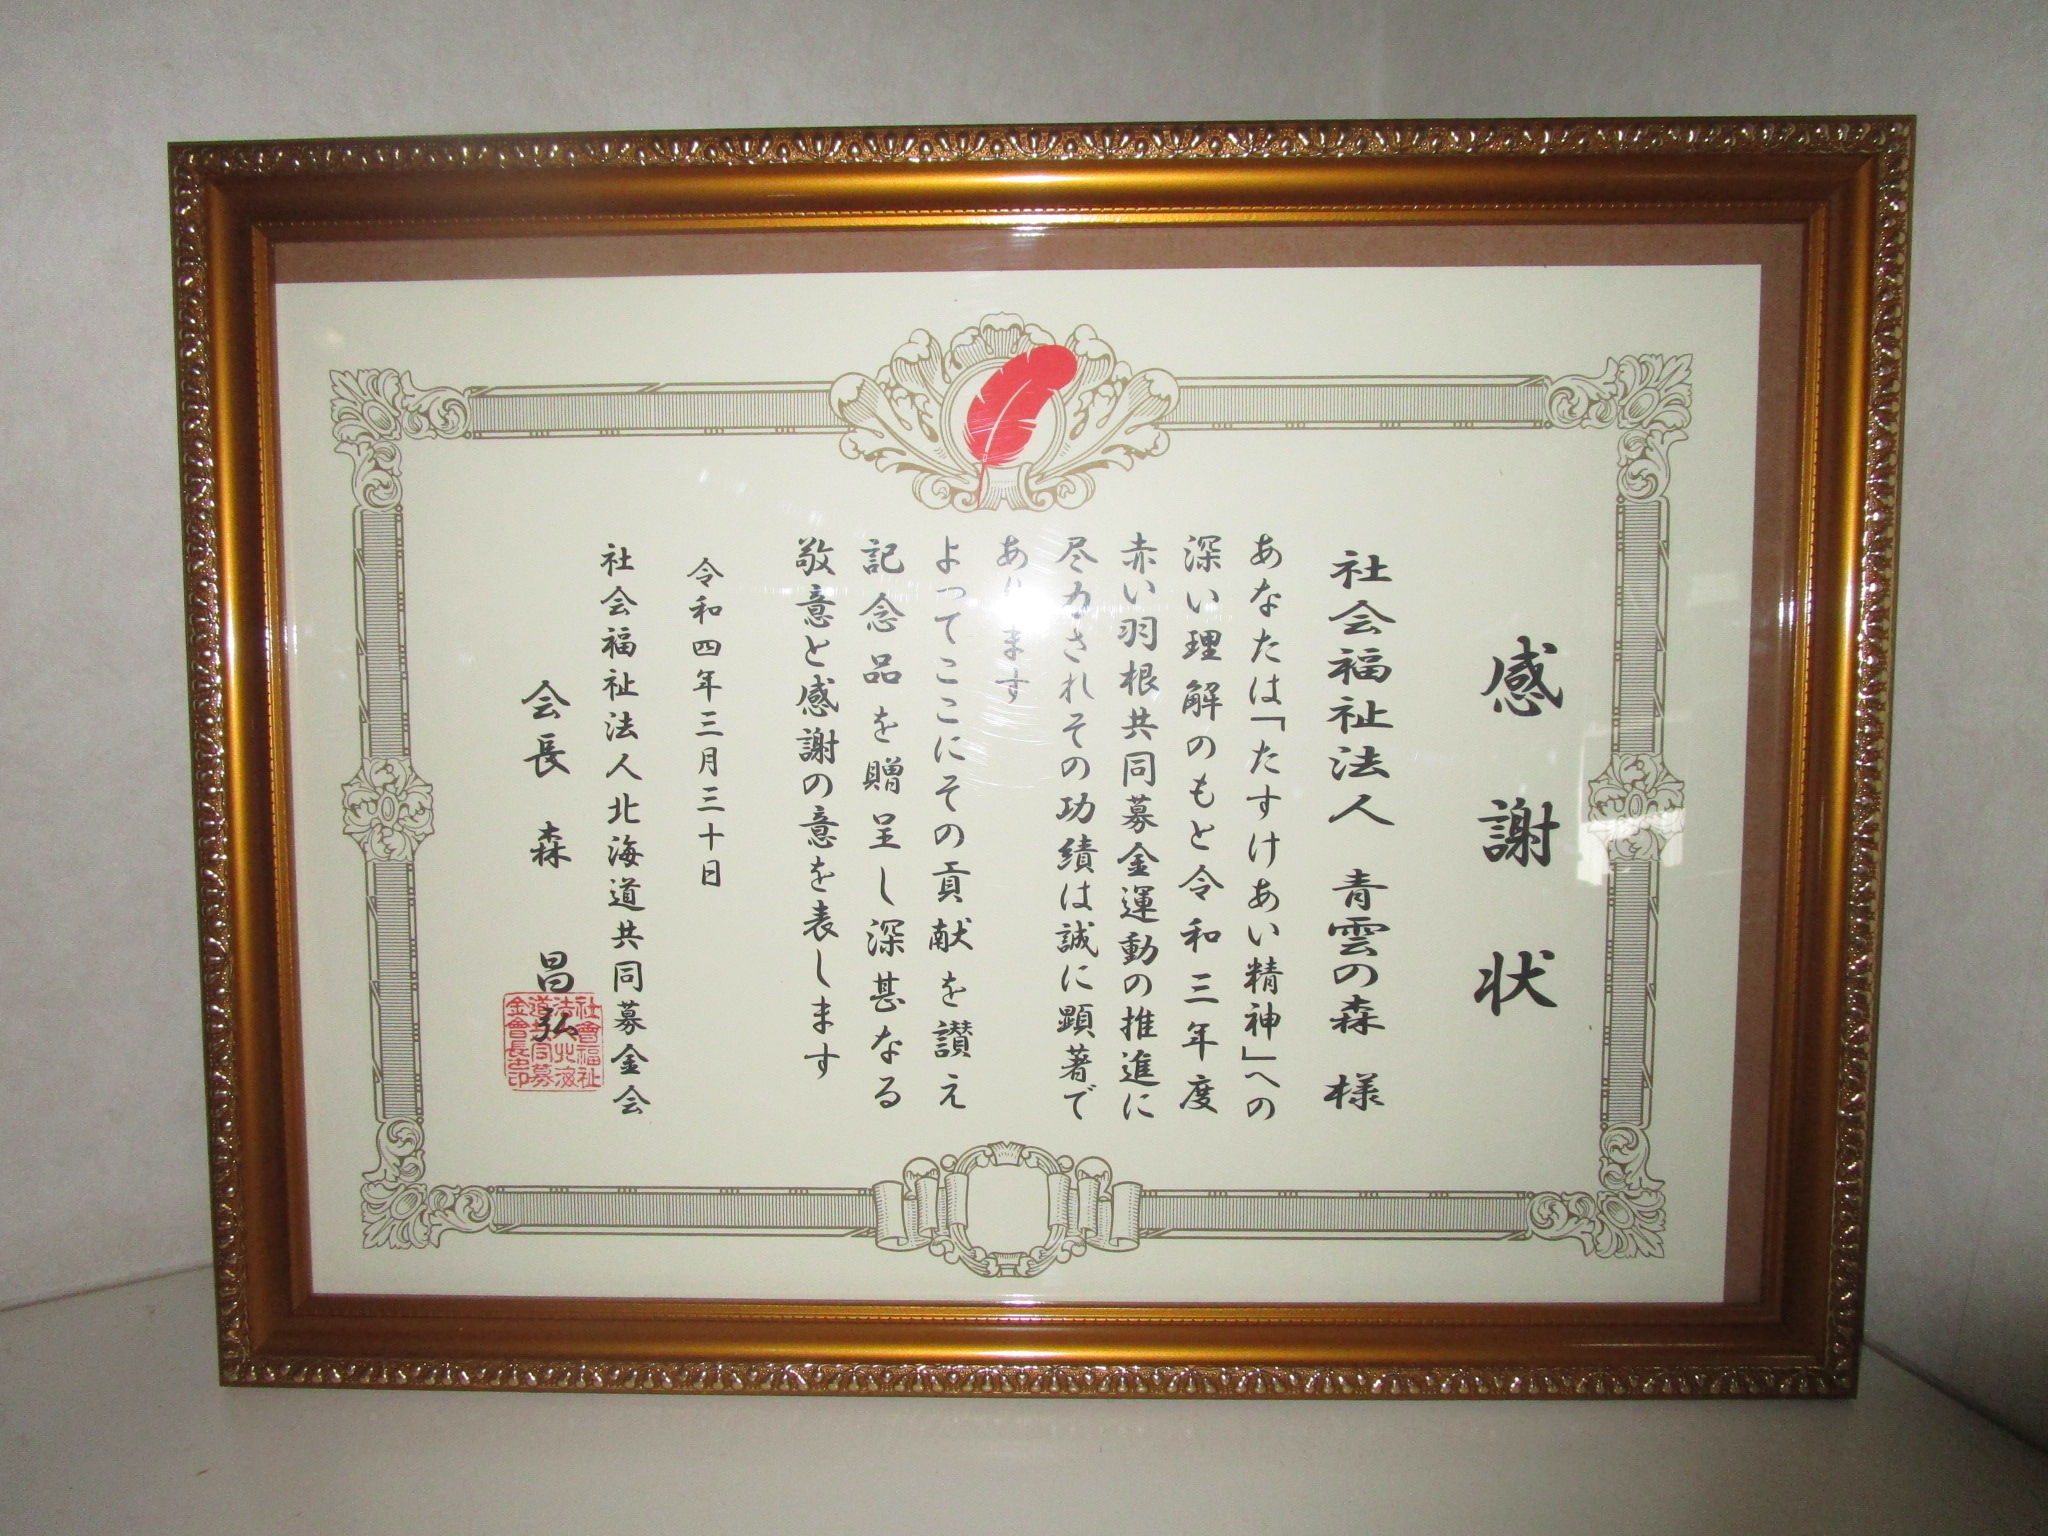 感謝状
社会福祉法人 青雲の森 様
あなたは「たすけあい精神」への
深い理解のもと令和三年度
赤い羽根共同募金運動の推進に
尽力されその功績は誠に顕著で
あります
よってここにその貢献を讃え
記念品を贈呈し深甚なる
敬意と感謝の意を表します
令和四年三月三十日
社会福祉法人北海道共同募金会
会長 森 昌弘
社會福祉
法人北海
道共同募
金會長之印